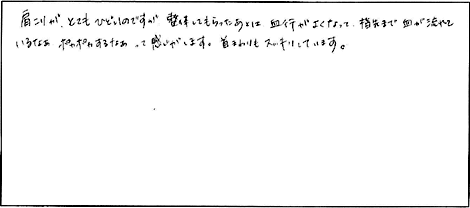 肩こりが、とてもひどいのですが 整体してもらったあとは 血行がよくなって、指先まで 血が流れて
いるなぁ ポカポカするなぁ って感じがします。首まわりもスッキリしています。